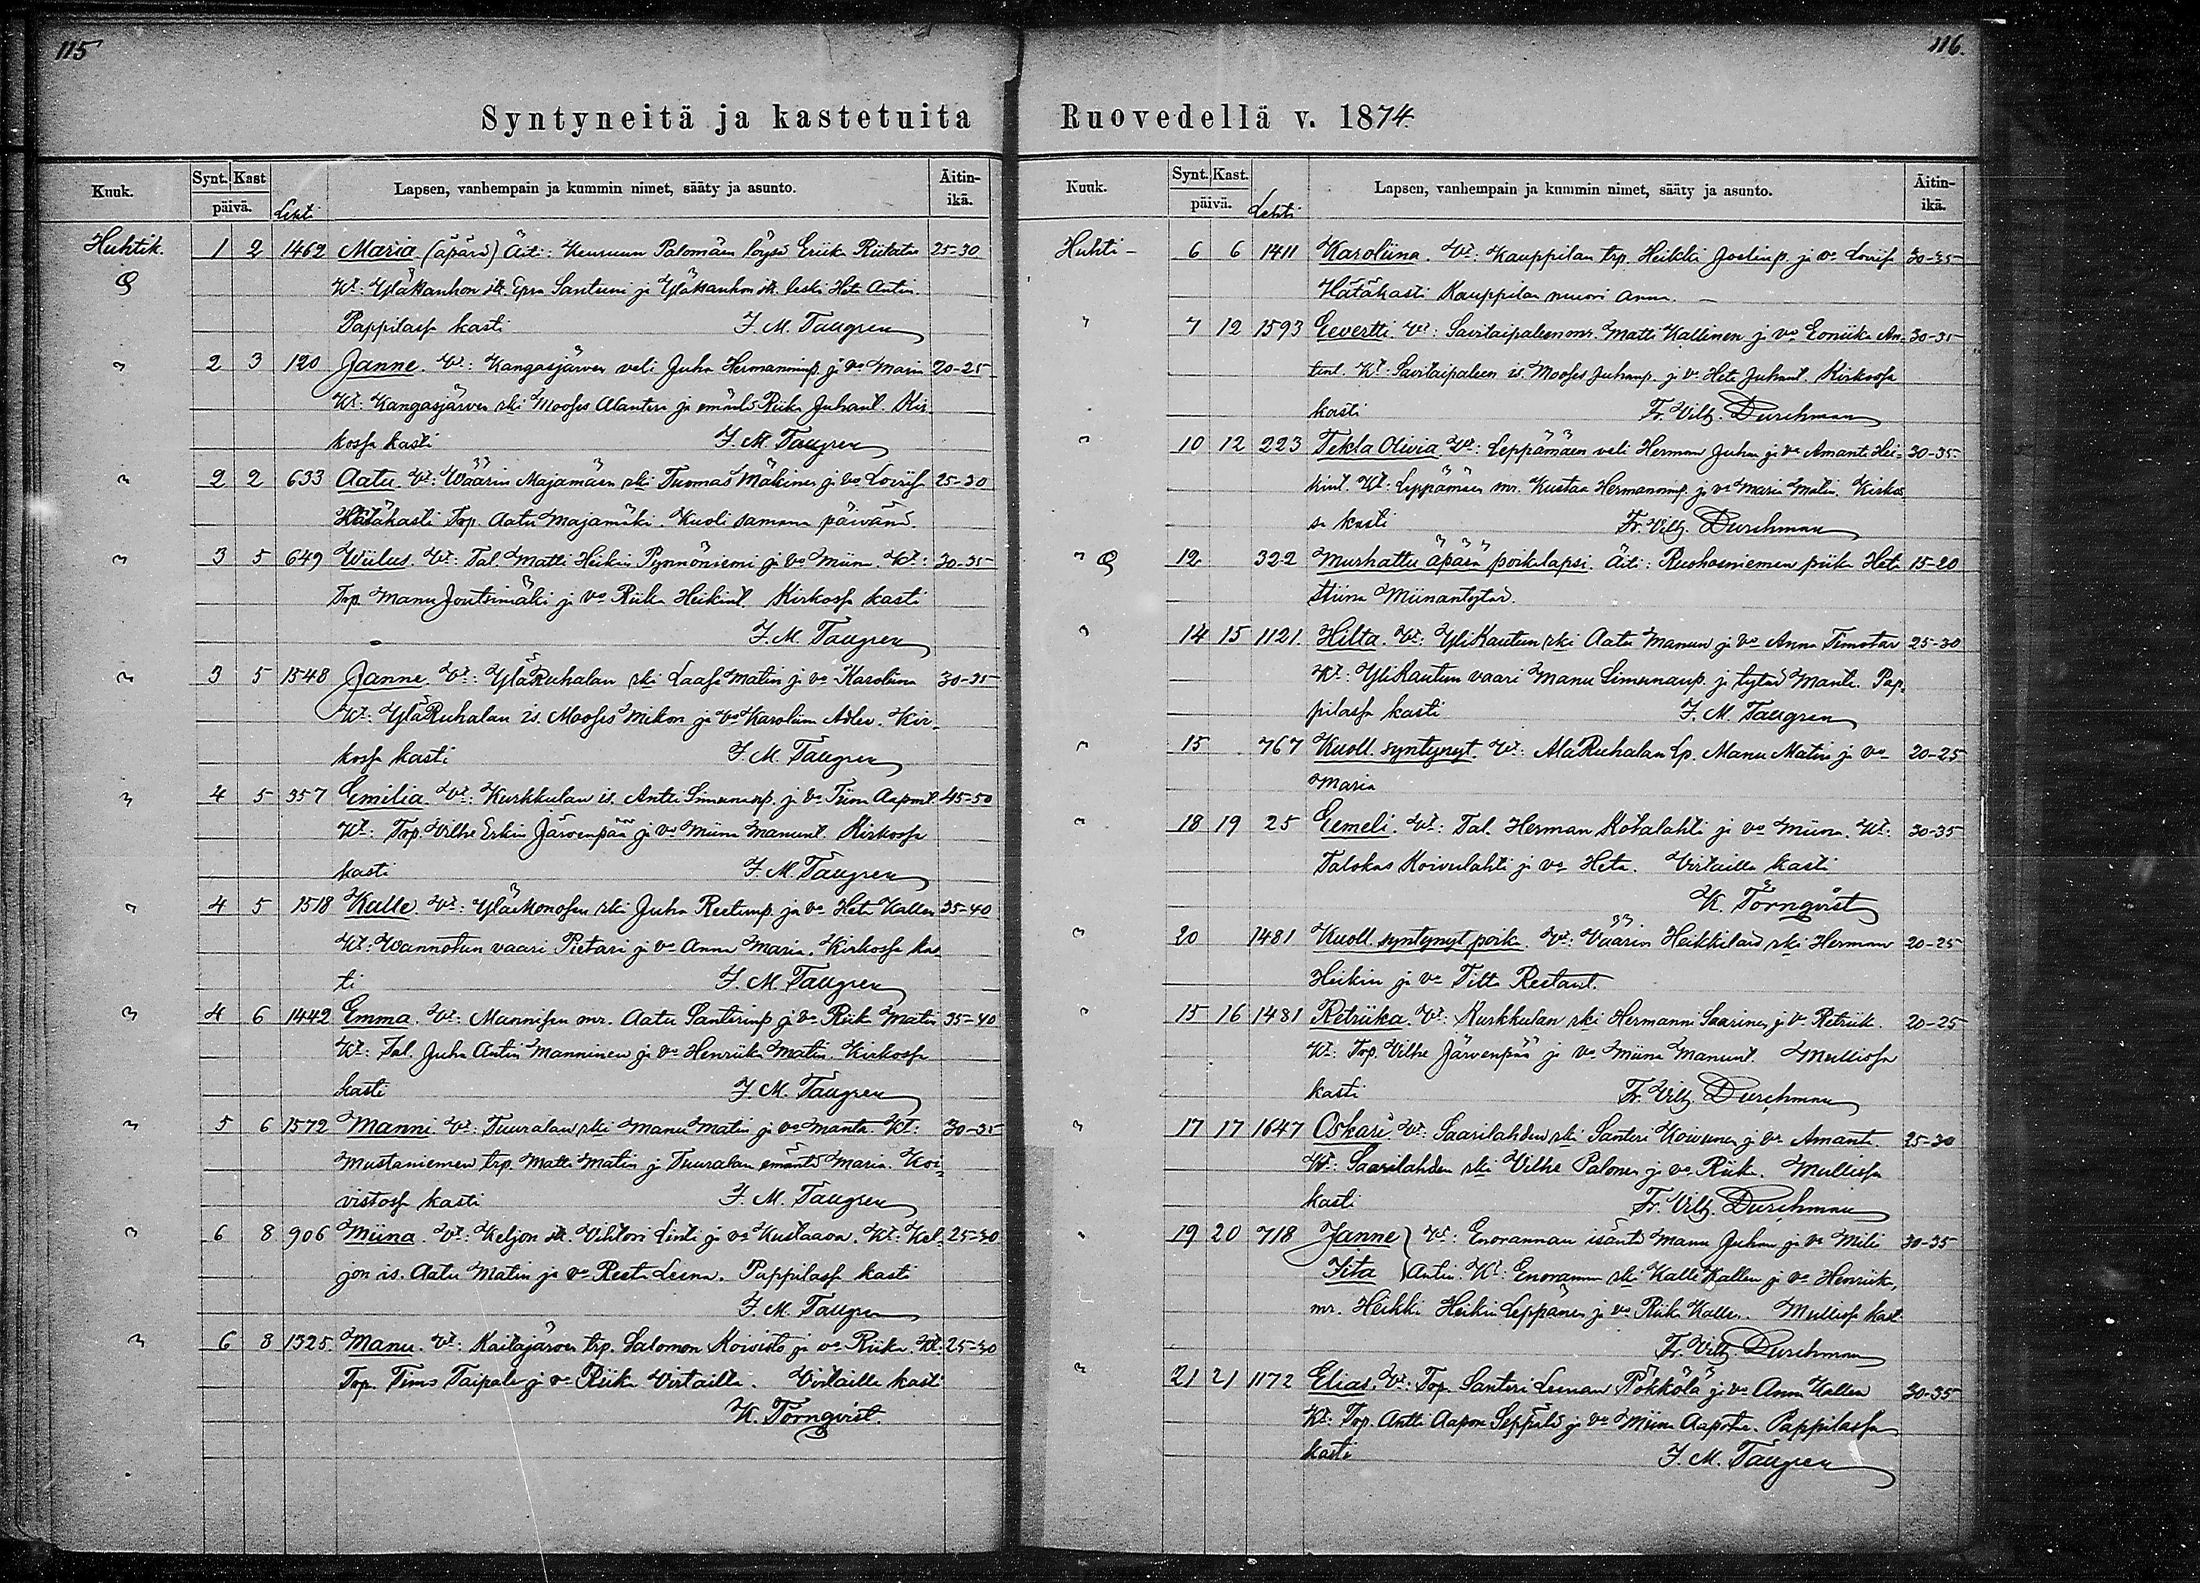 115
Syntyneitä ja kastetuita
Kuuk.
Synt. Kast
päivä.
Lehti
Lapsen, vanhempain ja kummin nimet, sääty ja asunto.
Äitin-
ikä.
Huhtik. 1 2 1462 Maria (äpärä) Äiti: Keuruun Palomäen löysä Eriika Riitatar 25-30
Kt: Yläkauhon Epra Santerin ja Yläkauhon leski Heta Antin.
Pappilassa kasti J. M. Taugren
" 2 3 120 Janne. Vt: Kangasjärven veli Juha Hermanninp. ja vo Maria 20-25
Kt: Kangasjärven rki Mooses Alanteri ja emäntä Riika Juhant. Kir-
kossa kasti J. M. Taugren
" 2 2 633 Aatu. Vt: Wäärin Majamäen rki Tuomas Mäkinen ja vo Loviisa 25-30
Hätäkasti Trp. Aatu Majamäki. Kuoli samana päivänä.
" 3 5 649 Wilus. Vt: Tal. Matti Heikin Pynnöniemi ja vo Miina. Kt: 30-35
Trp Manu Joutsimäki ja vo Riika Heikint. Kirkossa kasti
J. M. Taugren
" 3 5 1548 Janne. Vt: YläRuhalan rki Laasa Matin ja vo Karoliina 30-35
Kt: YläRuhalan is. Mooses Mikon ja vo Karoliina Adler. Kir-
kossa kasti J. M. Taugren
" 4 5 357 Emilia. Vt: Kurkkulan is. Antti Simunanp. ja vo Tiina Aapont. 45-50
Kt: Trp. Vilhe Erkin Järvenpää ja vo Miina Manunt. Kirkossa
kasti J. M. Taugren
" 4 5 1518 Kalle. Vt: Ylä rki Juha Reetunp. ja vo Heta Kallen 35-40
Kt: Wannotun vaari Pietari ja vo Anna Maria. Kirkossa kas
ti J. M. Taugren
" 4 6 1442 Emma. Vt: Mannisen mr. Aatu Santerinp. ja vo Riika Matin 35-40
Kt: Tal. Juha Antin Manninen ja vo Henriika Matin. Kirkossa
kasti J. M. Taugren
" 5 6 1572 Manni. Vt: Tuuralan rki Manu Matin ja vo Manta. Kt: 30-35
Mustaniemen trp. Matti Matin ja Tuuralan emäntä Maria. Koi-
vistossa kasti J. M. Taugren
" 6 8 906 Miina. Vt: Keljon Vihtori Linti ja vo Kustaava. Kt: Kel- 25-30
jon is. Aatu Matin ja vo Reeta Leena. Pappilassa kasti
J. M. Taugren
" 6 8 1325 Manu. Vt: Kaitajärven trp. Salomon Koivisto ja vo Riika. Kt: 25-30
Trp. Timo Taipale ja vo Riika Virtailta. Virtailla kasti
K. Törnqvist.
116.
Ruovedellä v. 1874.
Kuuk.
Synt. Kast.
päivä.
Lehti
Lapsen, vanhempain ja kummin nimet, sääty ja asunto.
Äitin-
ikä.
Huhti- 6 6 1411 Karoliina. Vt: Kauppilan trp. Heikki Joelinp. ja vo Loviisa 30-35
Hätäkasti Kauppilan muori Anna. —
" 7 12 1593 Eevertti. Vt: Savitaipaleen mr. Matti Kallinen ja vo Eeriika An- 30-35
tint. Kt: Savitaipaleen is. Mooses Juhanp. ja vo Heta Juhant. Kirkossa
kasti Fr. Vilh. Durchman
" 10 12 223 Tekla Olivia. Vt: Leppämäen veli Herman Juhan ja vo Amanta Hei- 30-35
kint. Kt: Leppämäen mr. Kustaa Hermanninp. ja vo Maria Matin. Kirkos
sa kasti Fr. Vilh. Durchman
" 12 322 Murhattu äpärä poikalapsi. Äiti: Ruohosniemen piika Heta 15-20
Stiina Miinantytär.
" 14 15 1121 Hilta. Vt: YliKautun rki Aatu Manun ja vo Anna Timotar 25-30
Kt: YliKautun vaari Manu Simunanp. ja tytär Manta. Pap-
pilassa kasti J. M. Taugren
" 15 767 Kuoll. syntynyt. Vt: AlaRuhalan Lp. Manu Matin ja vo 20-25
Maria
" 18 19 25 Eemeli. Vt: Tal. Herman Kotalahti ja vo Miina. Kt: 30-35
Talokas Koivulahti ja vo Heta. Virtailla kasti
K. Törnqvist
" 20 1481 Kuoll. syntynyt poika. Vt: Väärin Heikkilän rki Herman 20-25
Heikin ja vo Tilta Reetant.
" 15 16 1481 Retriika. Vt: Kurkkulan rki Hermanni Saarinen ja vo Retriik. 20-25
Kt: Trp. Vilhe Järvenpää ja vo Miina Manunt. Mulliossa
kasti Fr. Vilh. Durchman
" 17 17 1647 Oskari. Vt: Saarilahden rki Santeri Koivunen ja vo Amanta. 25-30
Kt: Saarilahden rki Vilhe Palonen ja vo Riika. Mulliossa
kasti Fr. Vilh. Durchman
" 19 20 718 Janne } Vt: Enorannan isäntä Manu Juhan ja vo Miili 30-35
Iita } Antin. Kt: Enorannan rki Kalle Kallen ja vo Henriika,
mr. Heikki Heikin Leppänen ja vo Riika Kallen. Mulliossa kast
Fr. Vilh. Durchman
" 21 21 1172 Elias. Vt: Trp. Santeri Leenan Pökkölä ja vo Anna Kallen 30-35
Kt: Trp. Antti Aapon Seppälä ja vo Miina Aapotar. Pappilassa
kasti J. M. Taugren